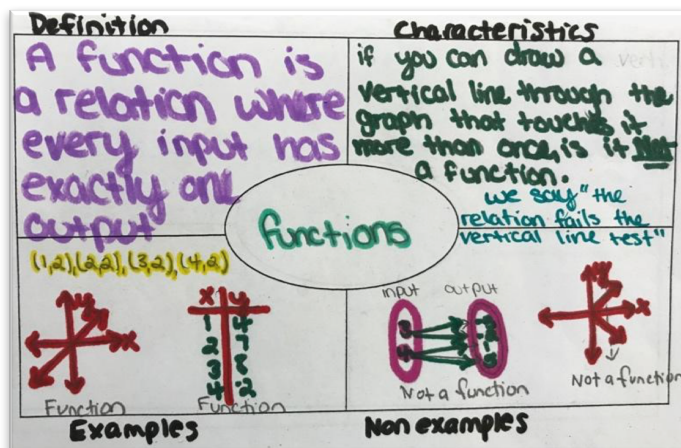 Definition
A function is
a relation where
every input has
exactly one
output
Characteristics
if you can draw a
vertical line through the
graph that touches it
more than once, is it Not
a function.
we say "the
relation fails the
vertical line test"
functions
(1,2),(2,2),(3,2),(4,2)
y
x
Function
x y
1 4
2 7
3 8
4 -2
Function
Examples
input output
3
4
Not a function
y
x
Not a function
Non examples